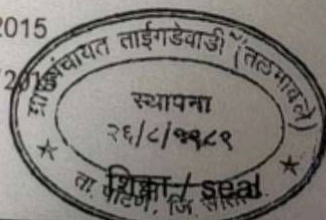 2015
ग्रामपंचायत ताईगडेवाडी (तळमावले)
स्थापना
२६/८/१९८९
शिक्का / seal
ता. पाटण, जि. सातारा